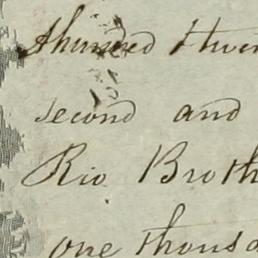 A hundred & twen
second and
Rio Broth
one thousa